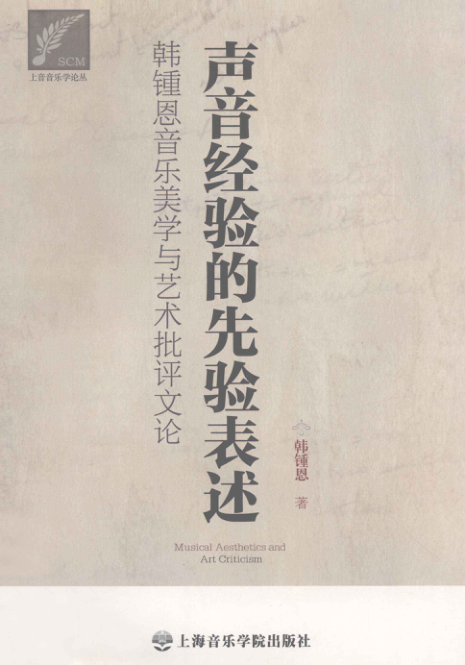 SCM
上音音乐学论丛
声音经验的先验表述
韩锺恩音乐美学与艺术批评文论
韩锺恩 著
Musical Aesthetics and
Art Criticism
上海音乐学院出版社